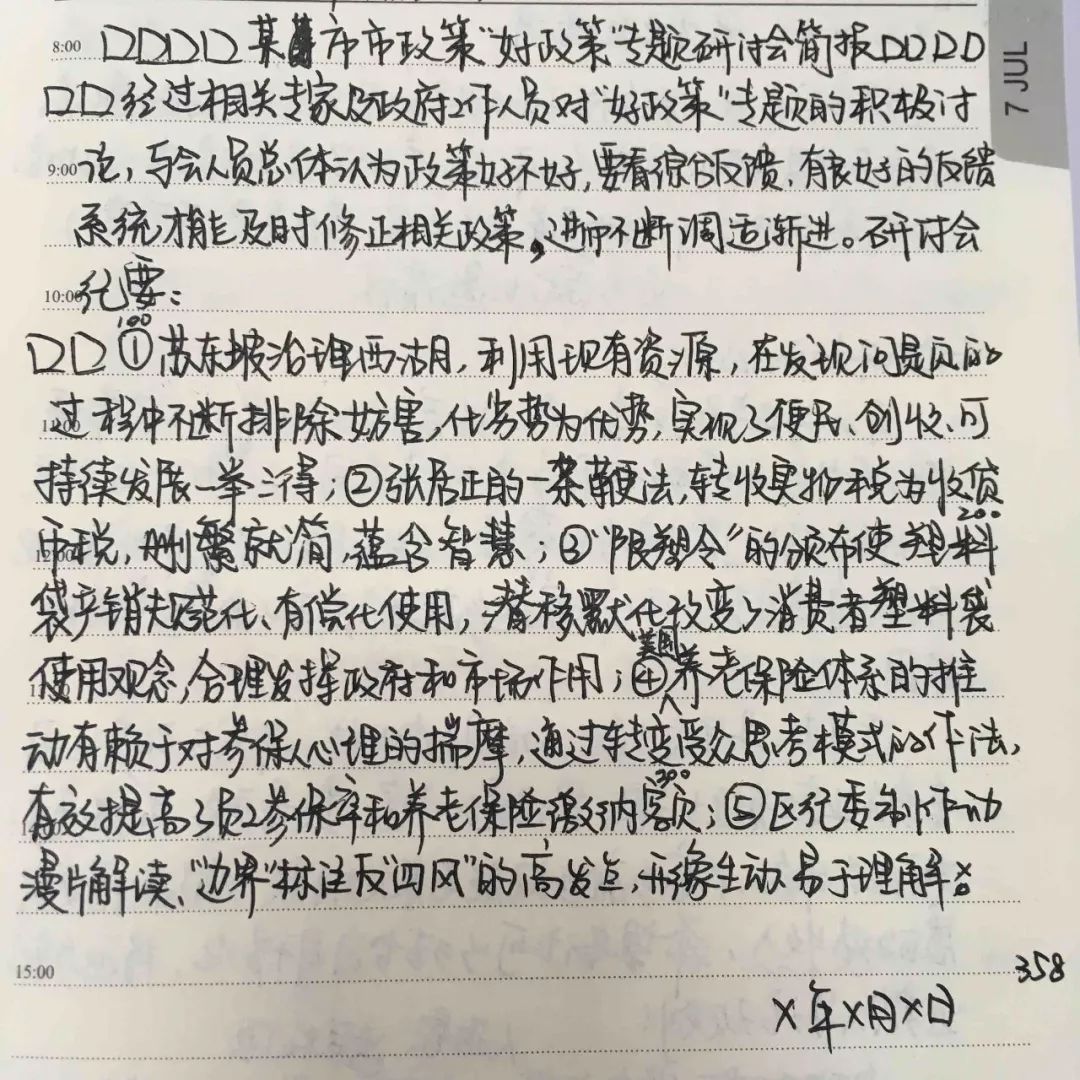 8:00 某市市政策"好政策"专题研讨会简报
7 JUL
经过相关专家及政府工作人员对"好政策"专题的积极讨
9:00 论,与会人员总体认为政策好不好,要看综合反馈,有良好的反馈
系统才能及时修正相关政策,进而不断调适渐进。研讨会
10:00 纪要:
100
①苏东坡治理西湖,利用现有资源,在发现问题的
11:00 过程中不断排除妨害,化劣势为优势,实现了便民、创收、可
持续发展一举三得;②张居正的一条鞭法,转收实物税为收货
200
12:00 币税,删繁就简,蕴含智慧;③"限塑令"的颁布使塑料
袋产销规范化、有偿化使用,潜移默化改变了消费者塑料袋
美国
使用观念,合理发挥政府和市场作用;④养老保险体系的推
动有赖于对参保人心理的揣摩,通过转变受众思考模式的作法,
300
有效提高了员工参保率和养老保险缴纳额;⑤区纪委制作动
漫片解读、"边界"标注反"四风"的高发点,形象生动易于理解。
15:00
358
X年X月X日